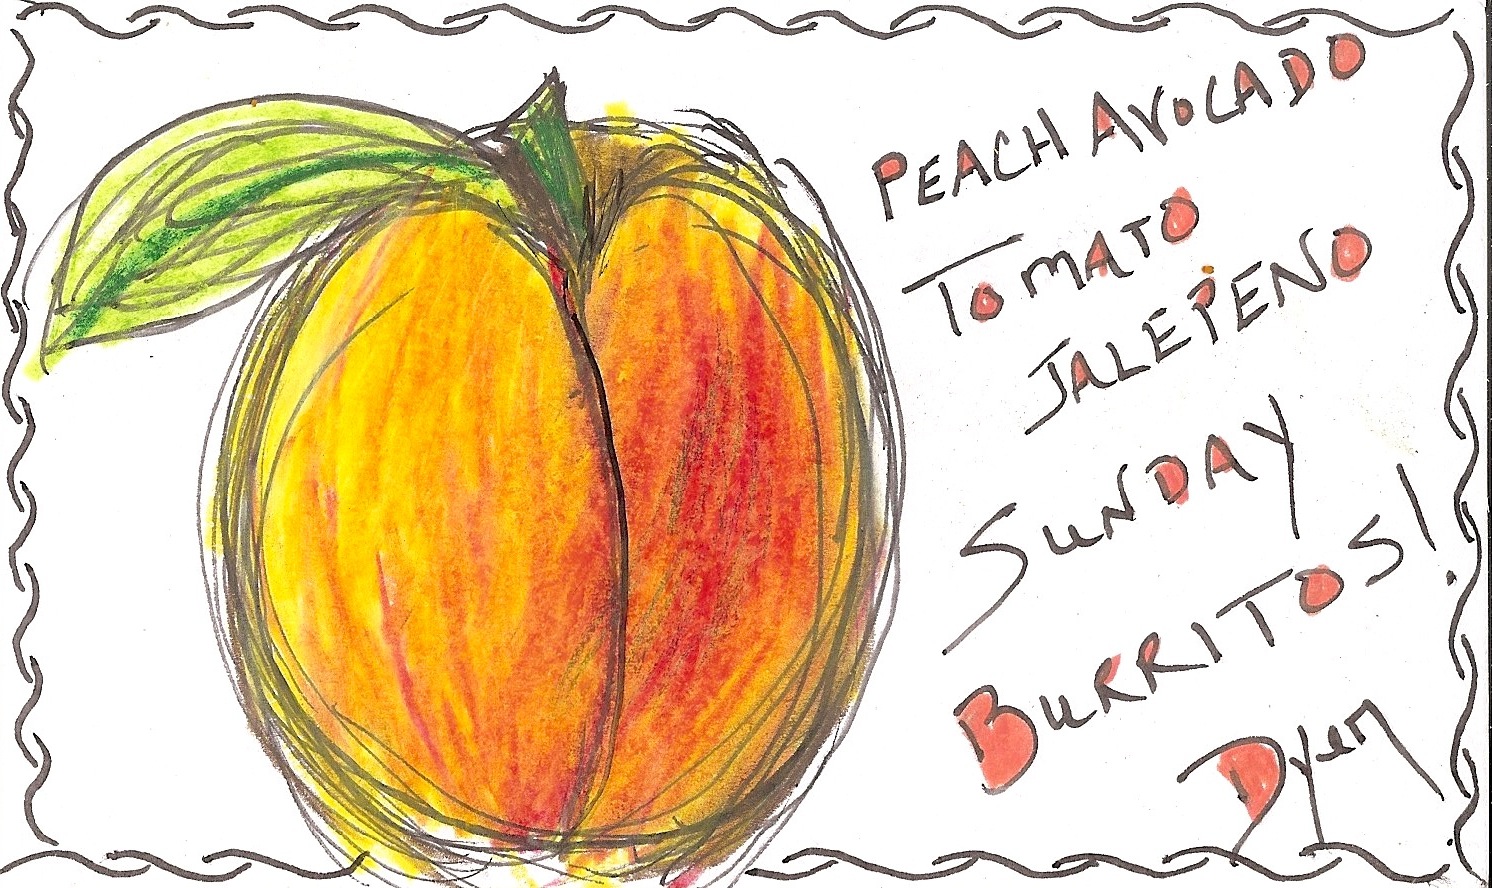 PEACH AVOCADO
TOMATO
JALEPENO
SUNDAY
BURRITOS!
Dyer